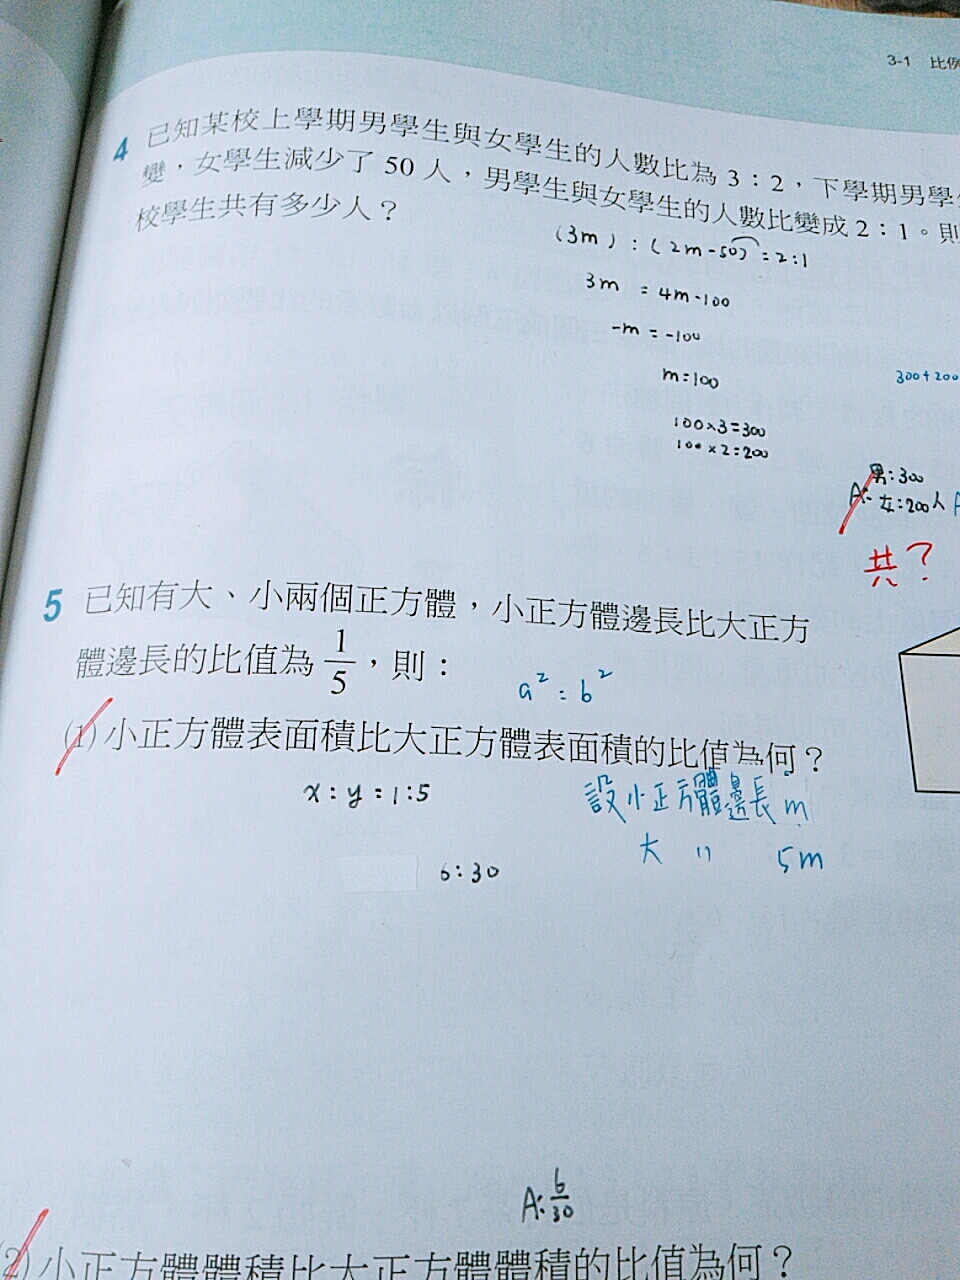 3-1 比例
4 已知某校上學期男學生與女學生的人數比為 3:2,下學期男學
變,女學生減少了 50 人,男學生與女學生的人數比變成 2:1。則
校學生共有多少人?
(3m):(2m-50)=2:1
3m = 4m-100
-m = -100
m=100
300+200
100×3=300
100×2=200
男:300
A: 女:200人 A
共?
5 已知有大、小兩個正方體,小正方體邊長比大正方
體邊長的比值為 1/5,則:
a²:b²
(1) 小正方體表面積比大正方體表面積的比值為何?
x:y=1:5
設小正方體邊長 m
大 〃 5m
6:30
A: 6/30
(2) 小正方體體積比大正方體體積的比值為何?